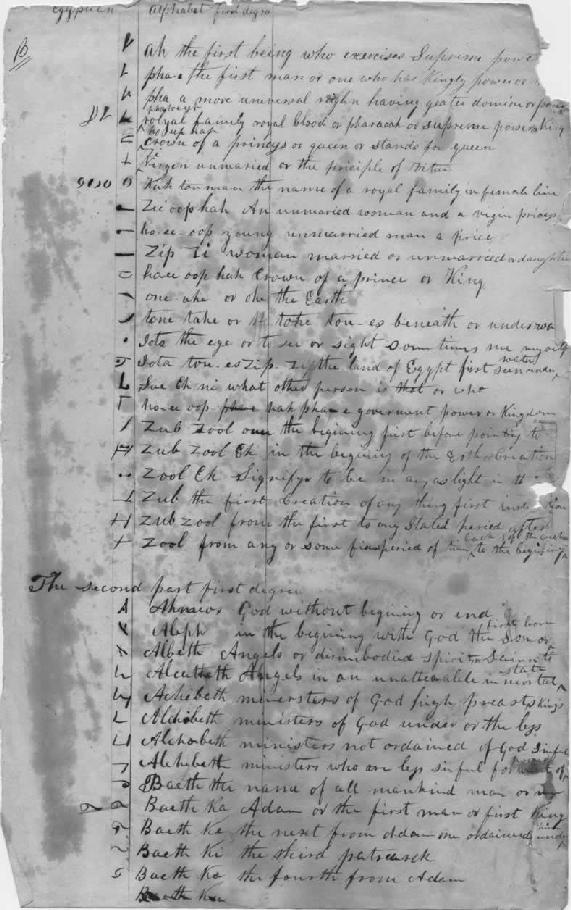 Egyptian Alphabet first degree
B
ah the first being who exercises Supreme power
pha-e the first man or one who has Kingly power or
pha a more universal reighn having greater dominion or power
royal family royal blood or pharaoh or supreme power or King
crown of a princess or queen or stands for queen
virgin unmaried or the priciple of virtue
Kah tou man the name of a royal family in female line
Zie oop hah An unmaried woman and a virgin princess
ho-ee-oop young unmarried man a prince
Zip Zi woman married or unmarried or daughter
ho-ee oop hah crown of a prince or King
one-ahe or oh the Earth
tone tahe or th tohe tou-es beneath or under wa
Iota the eye or to see or sight sometimes me myself
Iota tou-es Zip Zi the land of Egypt first seen under water
Sue Eh ni what other person is that or who
ho-ee oop hah pha-e government power or Kingdom
Zub Zool oan the begining first before pointing to
Zub Zool Eh in the begining of the Earth or Creation
Zool Eh Signifys to be in any as light in th
Zub the first creation of any thing first inst
Zub Zool from the first to any Stated period after
Zool from any or some fixed period of time back to the beginning
The second part first degree
Ahmeos God without begining or end
Aleph in the begining with God the Son or first born
Albeth Angels or disimbodied spirits Saints
Alcutbeth Angels in an unalterable immortal state
Achebeth ministers of God high preasts kings
Alchibeth ministers of God under or the less
Alchobeth ministers not ordained of God Sinful
Alchebeth ministers who are less sinful for
Baeth the name of all mankind man or
Baeth Ka Adam or the first man or first King
Baeth Ke the next from Adam one ordained
Baeth Ki the third patriarck
Baeth Ko the fourth from Adam
Baeth Ku